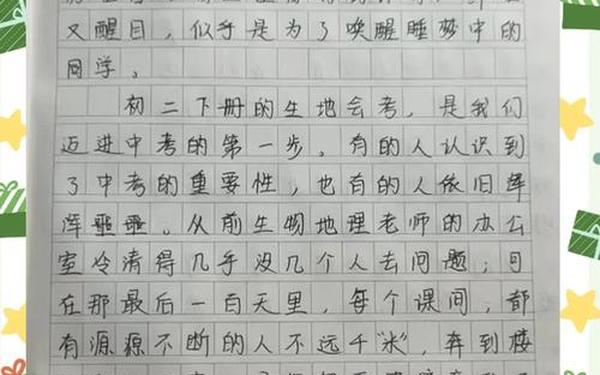 又醒目，似乎是为了唤醒睡梦中的
同学。
初二下册的生地会考，是我们
迈进中考的第一步。有的人认识到
了中考的重要性，也有的人依旧浑
浑噩噩。从前生物地理老师的办公
室冷清得几乎没几个人去问题；可
在那最后一百天里，每个课间，都
有源源不断的人不远千“米”，奔到楼